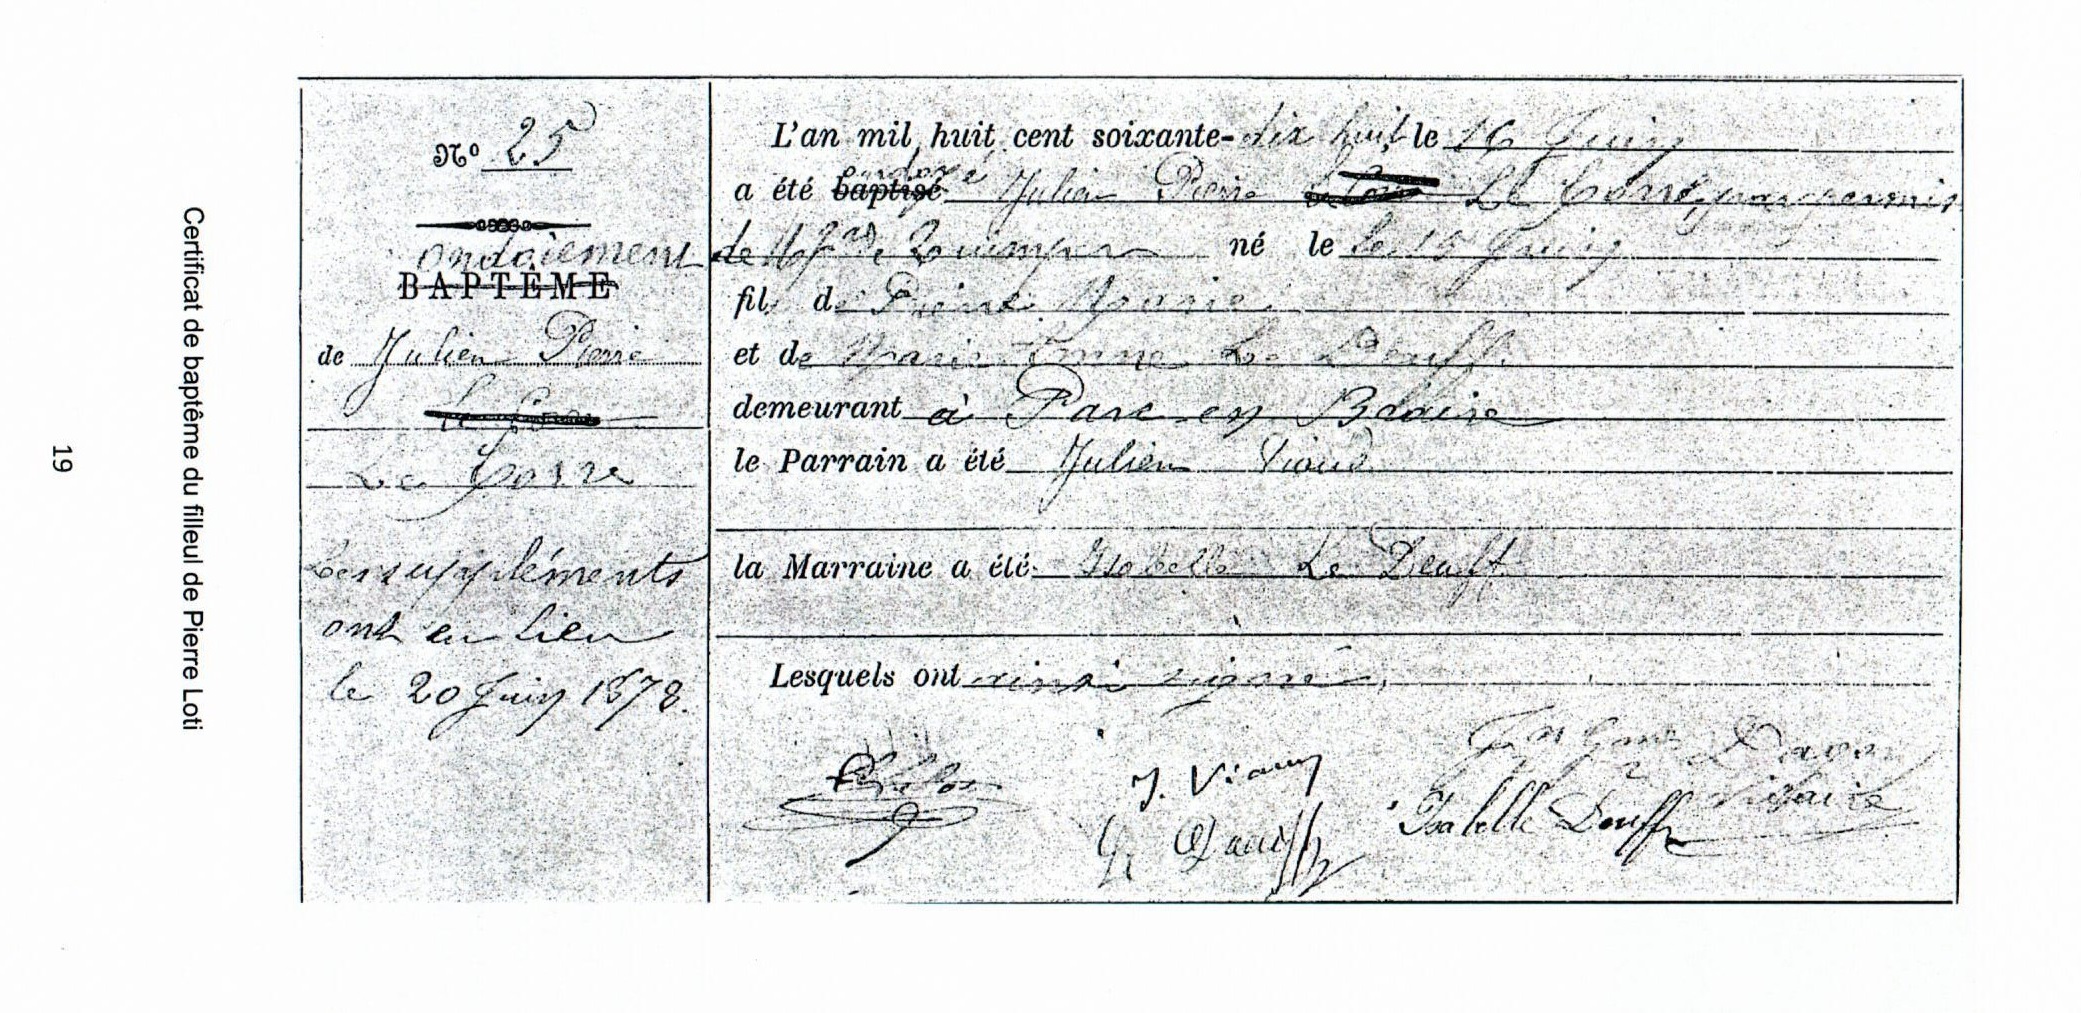 19
Certificat de baptême du filleul de Pierre Loti
N° 25
ondoiement
BAPTÊME
de Julien Pierre
Le Corre
Les suppléments
ont eu lieu
le 20 Juin 1878.
L'an mil huit cent soixante-dix huit le 16 Juin
a été baptisé ondoyé Julien Pierre Le Corre, par permis
de Mgr de Quimper né le le 15 Juin
fil de Pierre Marie
et de Marie Anne Le Deuff
demeurant à Parc en
le Parrain a été Julien Viaud
la Marraine a été Isabelle Le Deuff
Lesquels ont ainsi signé
J. Viaud
Isabelle Deuff
Vicaire